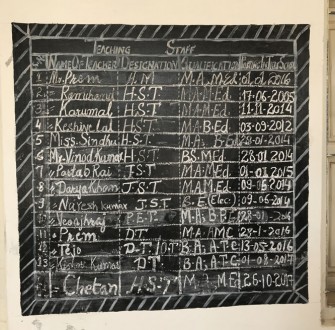 TEACHING STAFF
S# NAME OF TEACHER DESIGNATION QUALIFICATION
1 Mr. Prem H.M M.A, M.Ed 01.01.2016
2 H.S.T M.A M.Ed 17-06-2005
3 Karumal H.S.T M.A M.Ed 11-11-2014
4 H.S.T M.A B.Ed 03-09-2012
5 Miss. Sindhu H.S.T M.A, B.Ed 28-01-2014
6 Mr. Vinod Kumar H.S.T BS. M.Ed 28.01.2014
7 Partab Rai J.S.T M.A M.Ed 01-01-2015
8 Darya Khan J.S.T M.A M.Ed 09-06-2014
9 Naresh Kumar J.S.T B.E (Elec) 09-06-2014
P.E.T. M.A; B.P.E 28-01-2016
Prem DT M.A; AMC 28-1-2016
Tejo D.T. B.A; A.T.C 13-05-2016
Kumar DT. B.A; A.T.C 01-08-2017
Chetan H.S.T M.A M.Ed 26-10-2017